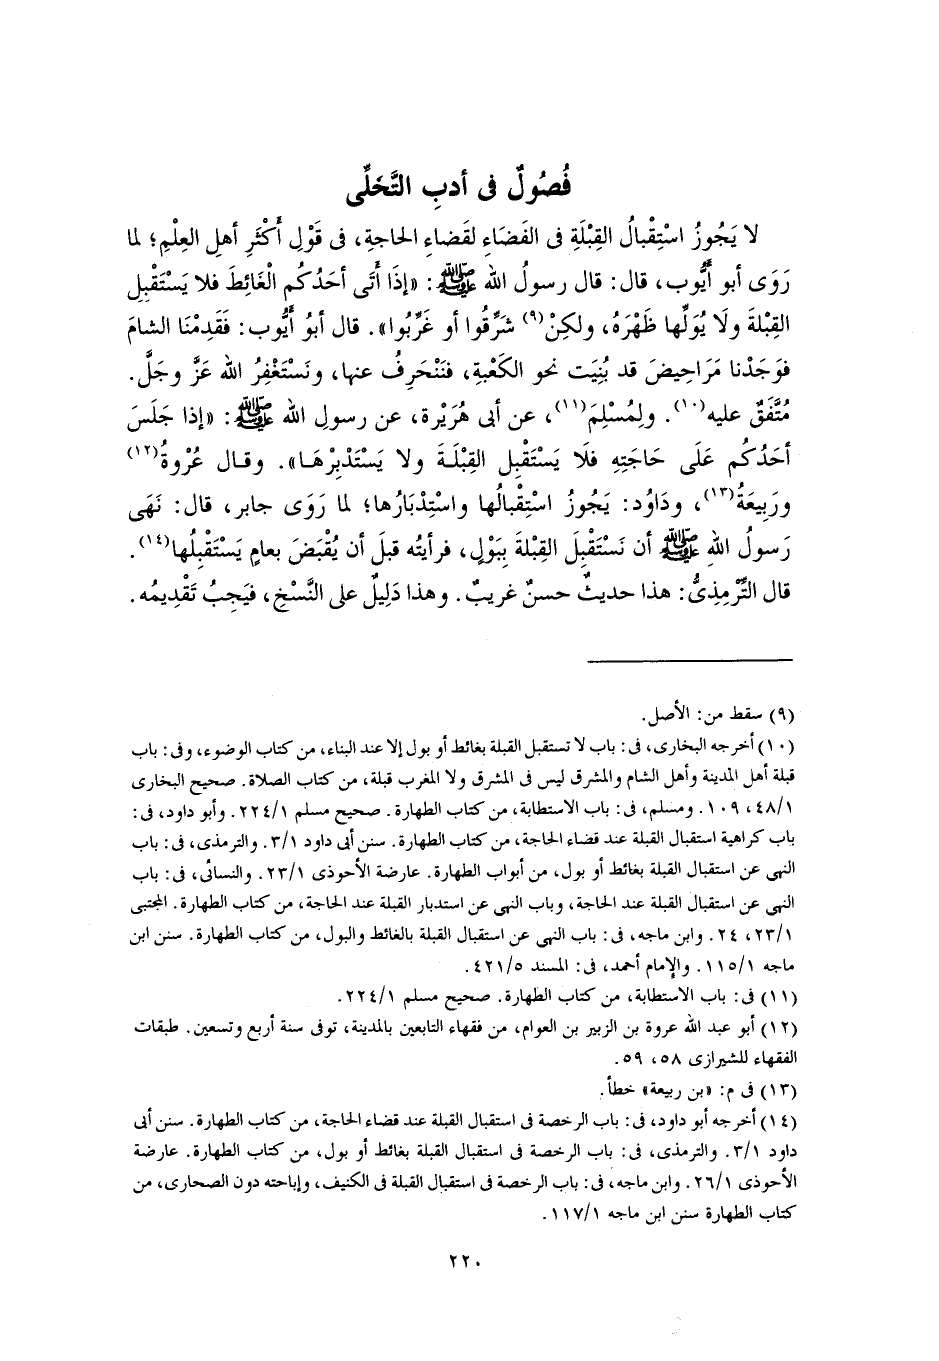 فُصُولٌ فى أدبِ التَّخَلِّى
لا يَجُوزُ اسْتِقْبالُ القِبْلَةِ فى الفَضَاءِ لقَضاءِ الحاجةِ، فى قَوْلِ أَكْثَرِ أهلِ العِلْمِ؛ لما
رَوَى أبو أَيُّوب، قال: قال رسولُ الله ﷺ: «إذَا أَتَى أحَدُكُم الْغَائِطَ فلا يَسْتَقْبِلِ
القِبْلةَ ولَا يُوَلِّها ظَهْرَهُ، ولكِنْ(٩) شَرِّقُوا أو غَرِّبُوا». قال أبوُ أَيُّوب: فَقَدِمْنَا الشامَ
فوَجَدْنا مَرَاحِيضَ قد بُنِيَت نحو الكَعْبةِ، فنَنْحَرِفُ عنها، ونَسْتَغْفِرُ الله عَزَّ وجَلَّ.
مُتَّفَقٌ عليه(١٠). ولِمُسْلِمَ(١١)، عن أبى هُرَيْرة، عن رسولِ الله ﷺ: «إذا جَلَسَ
أحَدُكُم عَلَى حَاجَتِهِ فلَا يَسْتَقْبِلِ القِبْلَـةَ ولا يَسْتَدْبِرْهَـا». وقـال عُرْوةُ(١٢)
ورَبِيعَةُ(١٣)، ودَاوُد: يَجُوزُ اسْتِقْبالُها واسْتِدْبارُها؛ لما رَوَى جابر، قال: نَهَى
رَسولُ اللهِ ﷺ أن نَسْتَقْبِلَ القِبْلةَ بِبَوْلٍ، فرأيتُه قبلَ أن يُقْبَضَ بعامٍ يَسْتَقْبِلُها(١٤).
قال التِّرْمِذِىُّ: هذا حديثٌ حسنٌ غريبٌ. وهذا دَلِيلٌ على النَّسْخِ، فيَجِبُ تَقْدِيمُه.
(٩) سقط من: الأصل.
(١٠) أخرجه البخارى، فى: باب لا تستقبل القبلة بغائط أو بول إلا عند البناء، من كتاب الوضوء، وفى: باب
قبلة أهل المدينة وأهل الشام والمشرق ليس فى المشرق ولا المغرب قبلة، من كتاب الصلاة. صحيح البخارى
٤٨/١، ١٠٩. ومسلم، فى: باب الاستطابة، من كتاب الطهارة. صحيح مسلم ٢٢٤/١. وأبو داود، فى:
باب كراهية استقبال القبلة عند قضاء الحاجة، من كتاب الطهارة. سنن أبى داود ٣/١. والترمذى، فى: باب
النهى عن استقبال القبلة بغائط أو بول، من أبواب الطهارة. عارضة الأحوذى ٢٣/١. والنسائى، فى: باب
النهى عن استقبال القبلة عند الحاجة، وباب النهى عن استدبار القبلة عند الحاجة، من كتاب الطهارة. المجتبى
٢٣/١، ٢٤. وابن ماجه، فى: باب النهى عن استقبال القبلة بالغائط والبول، من كتاب الطهارة. سنن ابن
ماجه ١١٥/١. والإمام أحمد، فى: المسند ٤٢١/٥.
(١١) فى: باب الاستطابة، من كتاب الطهارة. صحيح مسلم ٢٢٤/١.
(١٢) أبو عبد الله عروة بن الزبير بن العوام، من فقهاء التابعين بالمدينة، توفى سنة أربع وتسعين. طبقات
الفقهاء للشيرازى ٥٨، ٥٩.
(١٣) فى م: «بن ربيعة» خطأ.
(١٤) أخرجه أبو داود، فى: باب الرخصة فى استقبال القبلة عند قضاء الحاجة، من كتاب الطهارة. سنن أبى
داود ٣/١. والترمذى، فى: باب الرخصة فى استقبال القبلة بغائط أو بول، من كتاب الطهارة. عارضة
الأحوذى ٢٦/١. وابن ماجه، فى: باب الرخصة فى استقبال القبلة فى الكنيف، وإباحته دون الصحارى، من
كتاب الطهارة سنن ابن ماجه ١١٧/١.
٢٢٠